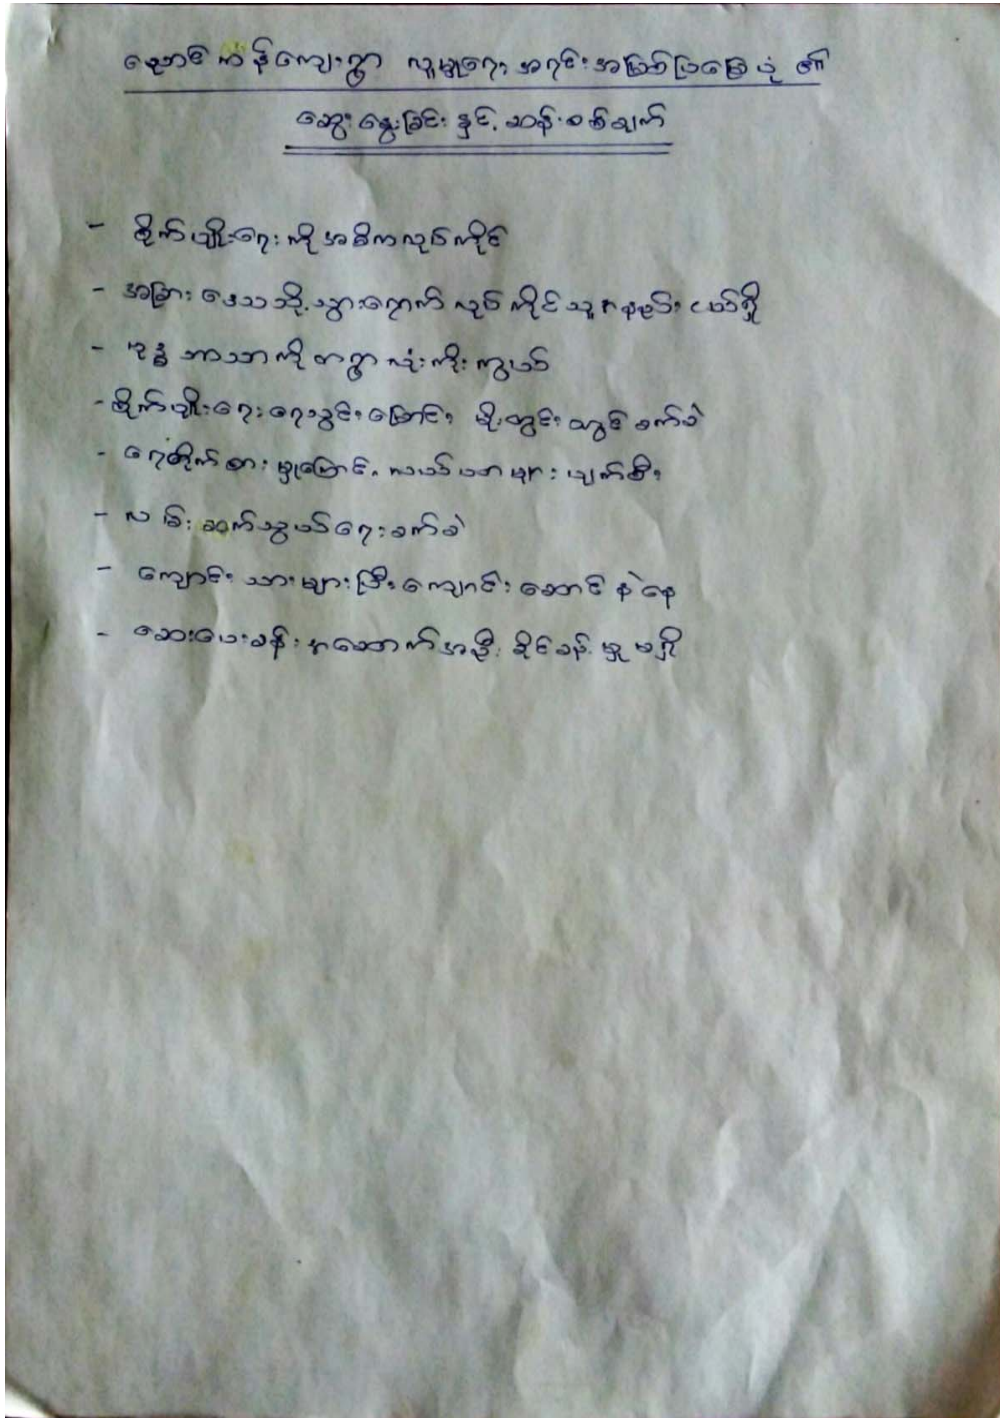 ညောင်ကန်ကျေးရွာ လူမှုရေး အရင်းအမြစ်ပြမြေပုံ ၏
ဆွေးနွေးခြင်း နှင့် ဆန်းစစ်ချက်
- စိုက်ပျိုးရေး ကို အဓိကလုပ်ကိုင်
- အခြား ဒေသသို့ သွားရောက် လုပ်ကိုင်သူ အနည်း ငယ်ရှိ
- ဗုဒ္ဓ ဘာသာကို တရွာ လုံးကိုး ကွယ်
- စိုက်ပျိုးရေး ရေသွင်းမြောင်း မိုးတွင်း တွင် ခက်ခဲ
- ရေတိုက်စား မှုကြောင့် လယ်ယာ များ ပျက်စီး
- လမ်း ဆက်သွယ်ရေး ခက်ခဲ
- ကျောင်း သားများပြီး ကျောင်း ဆောင် နဲနေ
- ဆေးပေးခန်း အဆောက်အဦး ခိုင်ခန့် မှု မရှိ